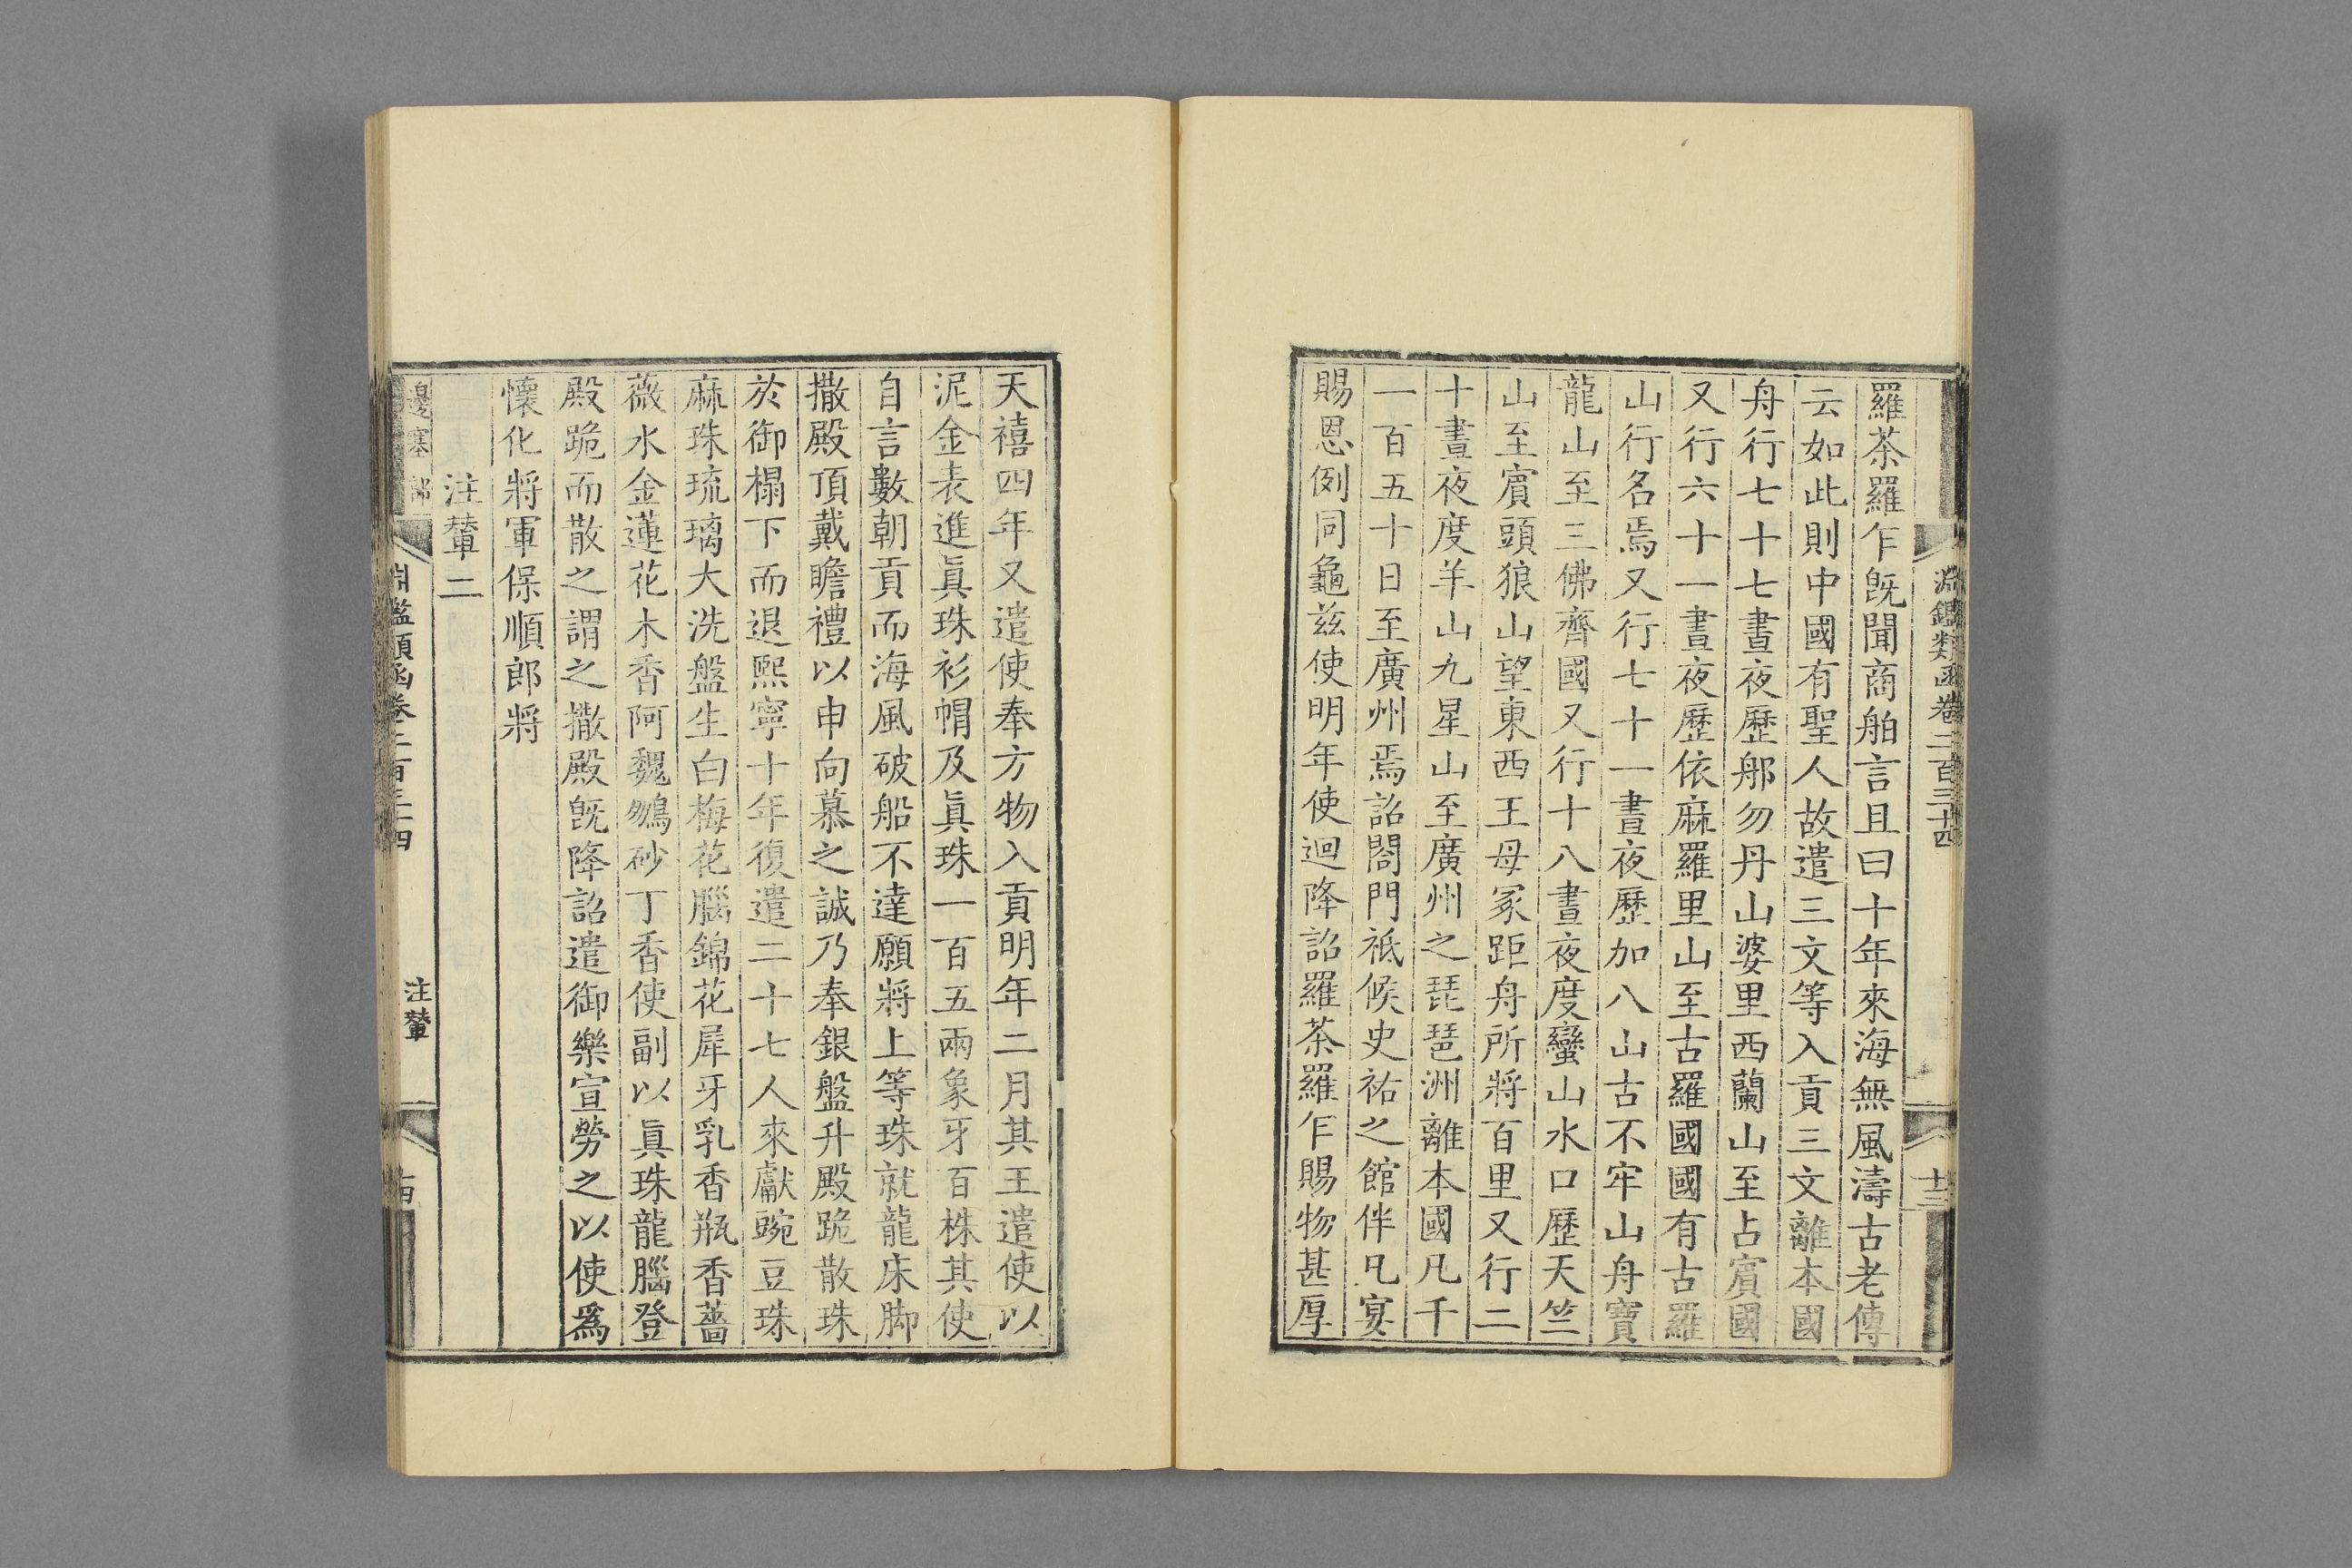 淵鑑類函卷二百三十四
十三
羅茶羅乍旣聞商舶言且曰十年來海無風濤古老傳
云如此則中國有聖人故遣三文等入貢三文離本國
舟行七十七晝夜歷郍勿丹山婆里西蘭山至占賔國
又行六十一晝夜歷依麻羅里山至古羅國國有古羅
山行名焉又行七十一晝夜歷加八山古不牢山舟寶
龍山至三佛齊國又行十八晝夜度蠻山水口歷天竺
山至賔頭狼山望東西王母冢距舟所將百里又行二
十晝夜度羊山九星山至廣州之琵琶洲離本國凡千
一百五十日至廣州焉詔閤門祗候史祐之館伴凡宴
賜恩例同龜兹使明年使迴降詔羅茶羅乍賜物甚厚
天禧四年又遣使奉方物入貢明年二月其王遣使以
泥金表進眞珠衫帽及眞珠一百五兩象牙百株其使
自言數朝貢而海風破船不達願將上等珠就龍床脚
撒殿頂戴瞻禮以申向慕之誠乃奉銀盤升殿跪散珠
於御榻下而退熙寧十年復遣二十七人來獻豌豆珠
麻珠琉璃大洗盤生白梅花腦錦花犀牙乳香瓶香薔
薇水金蓮花木香阿魏鵬砂丁香使副以眞珠龍腦登
殿跪而散之謂之撒殿旣降詔遣御樂宣勞之以使爲
懷化將軍保順郎將
注輦二
邊塞部
淵鑑類函卷二百三十四
注輦
十四